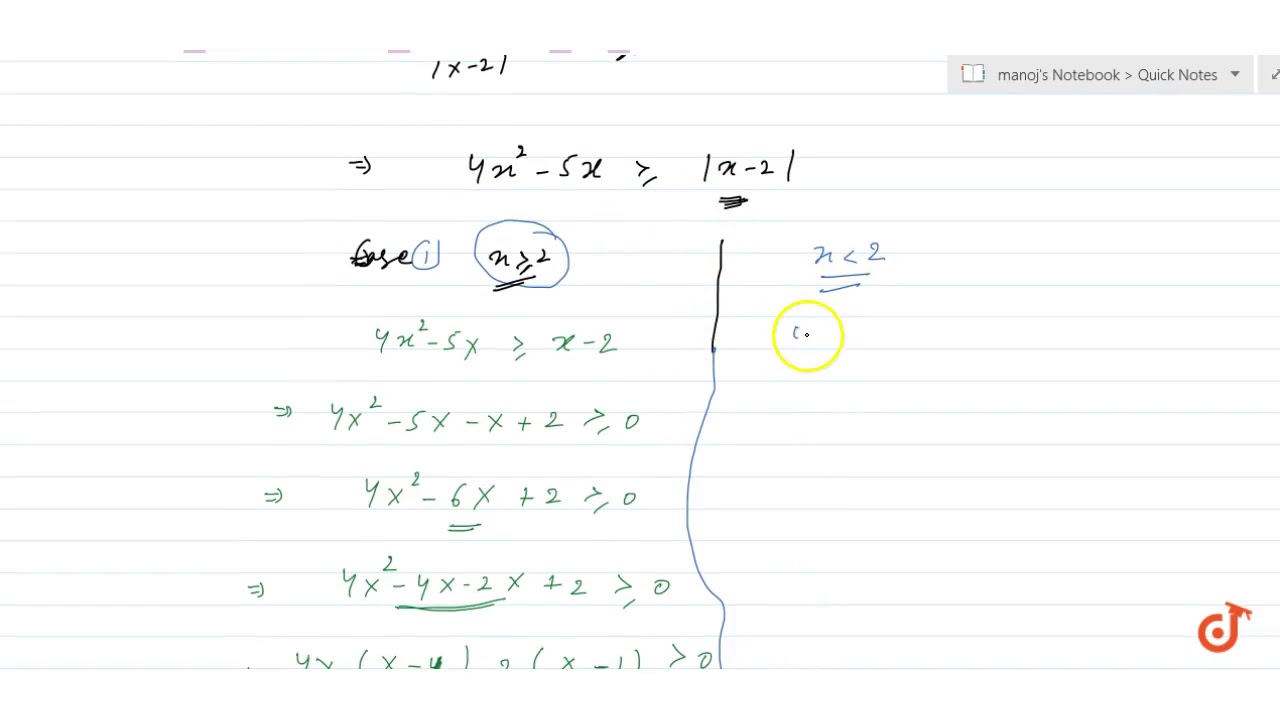 |x-2|
manoj's Notebook > Quick Notes
⇒ 4x² - 5x ≥ |x-2|
Case 1 x ≥ 2
x < 2
4x² - 5x ≥ x - 2
(
⇒ 4x² - 5x - x + 2 ≥ 0
⇒ 4x² - 6x + 2 ≥ 0
⇒ 4x² - 4x - 2x + 2 ≥ 0
4x (x - 1) 2 (x - 1) ≥ 0